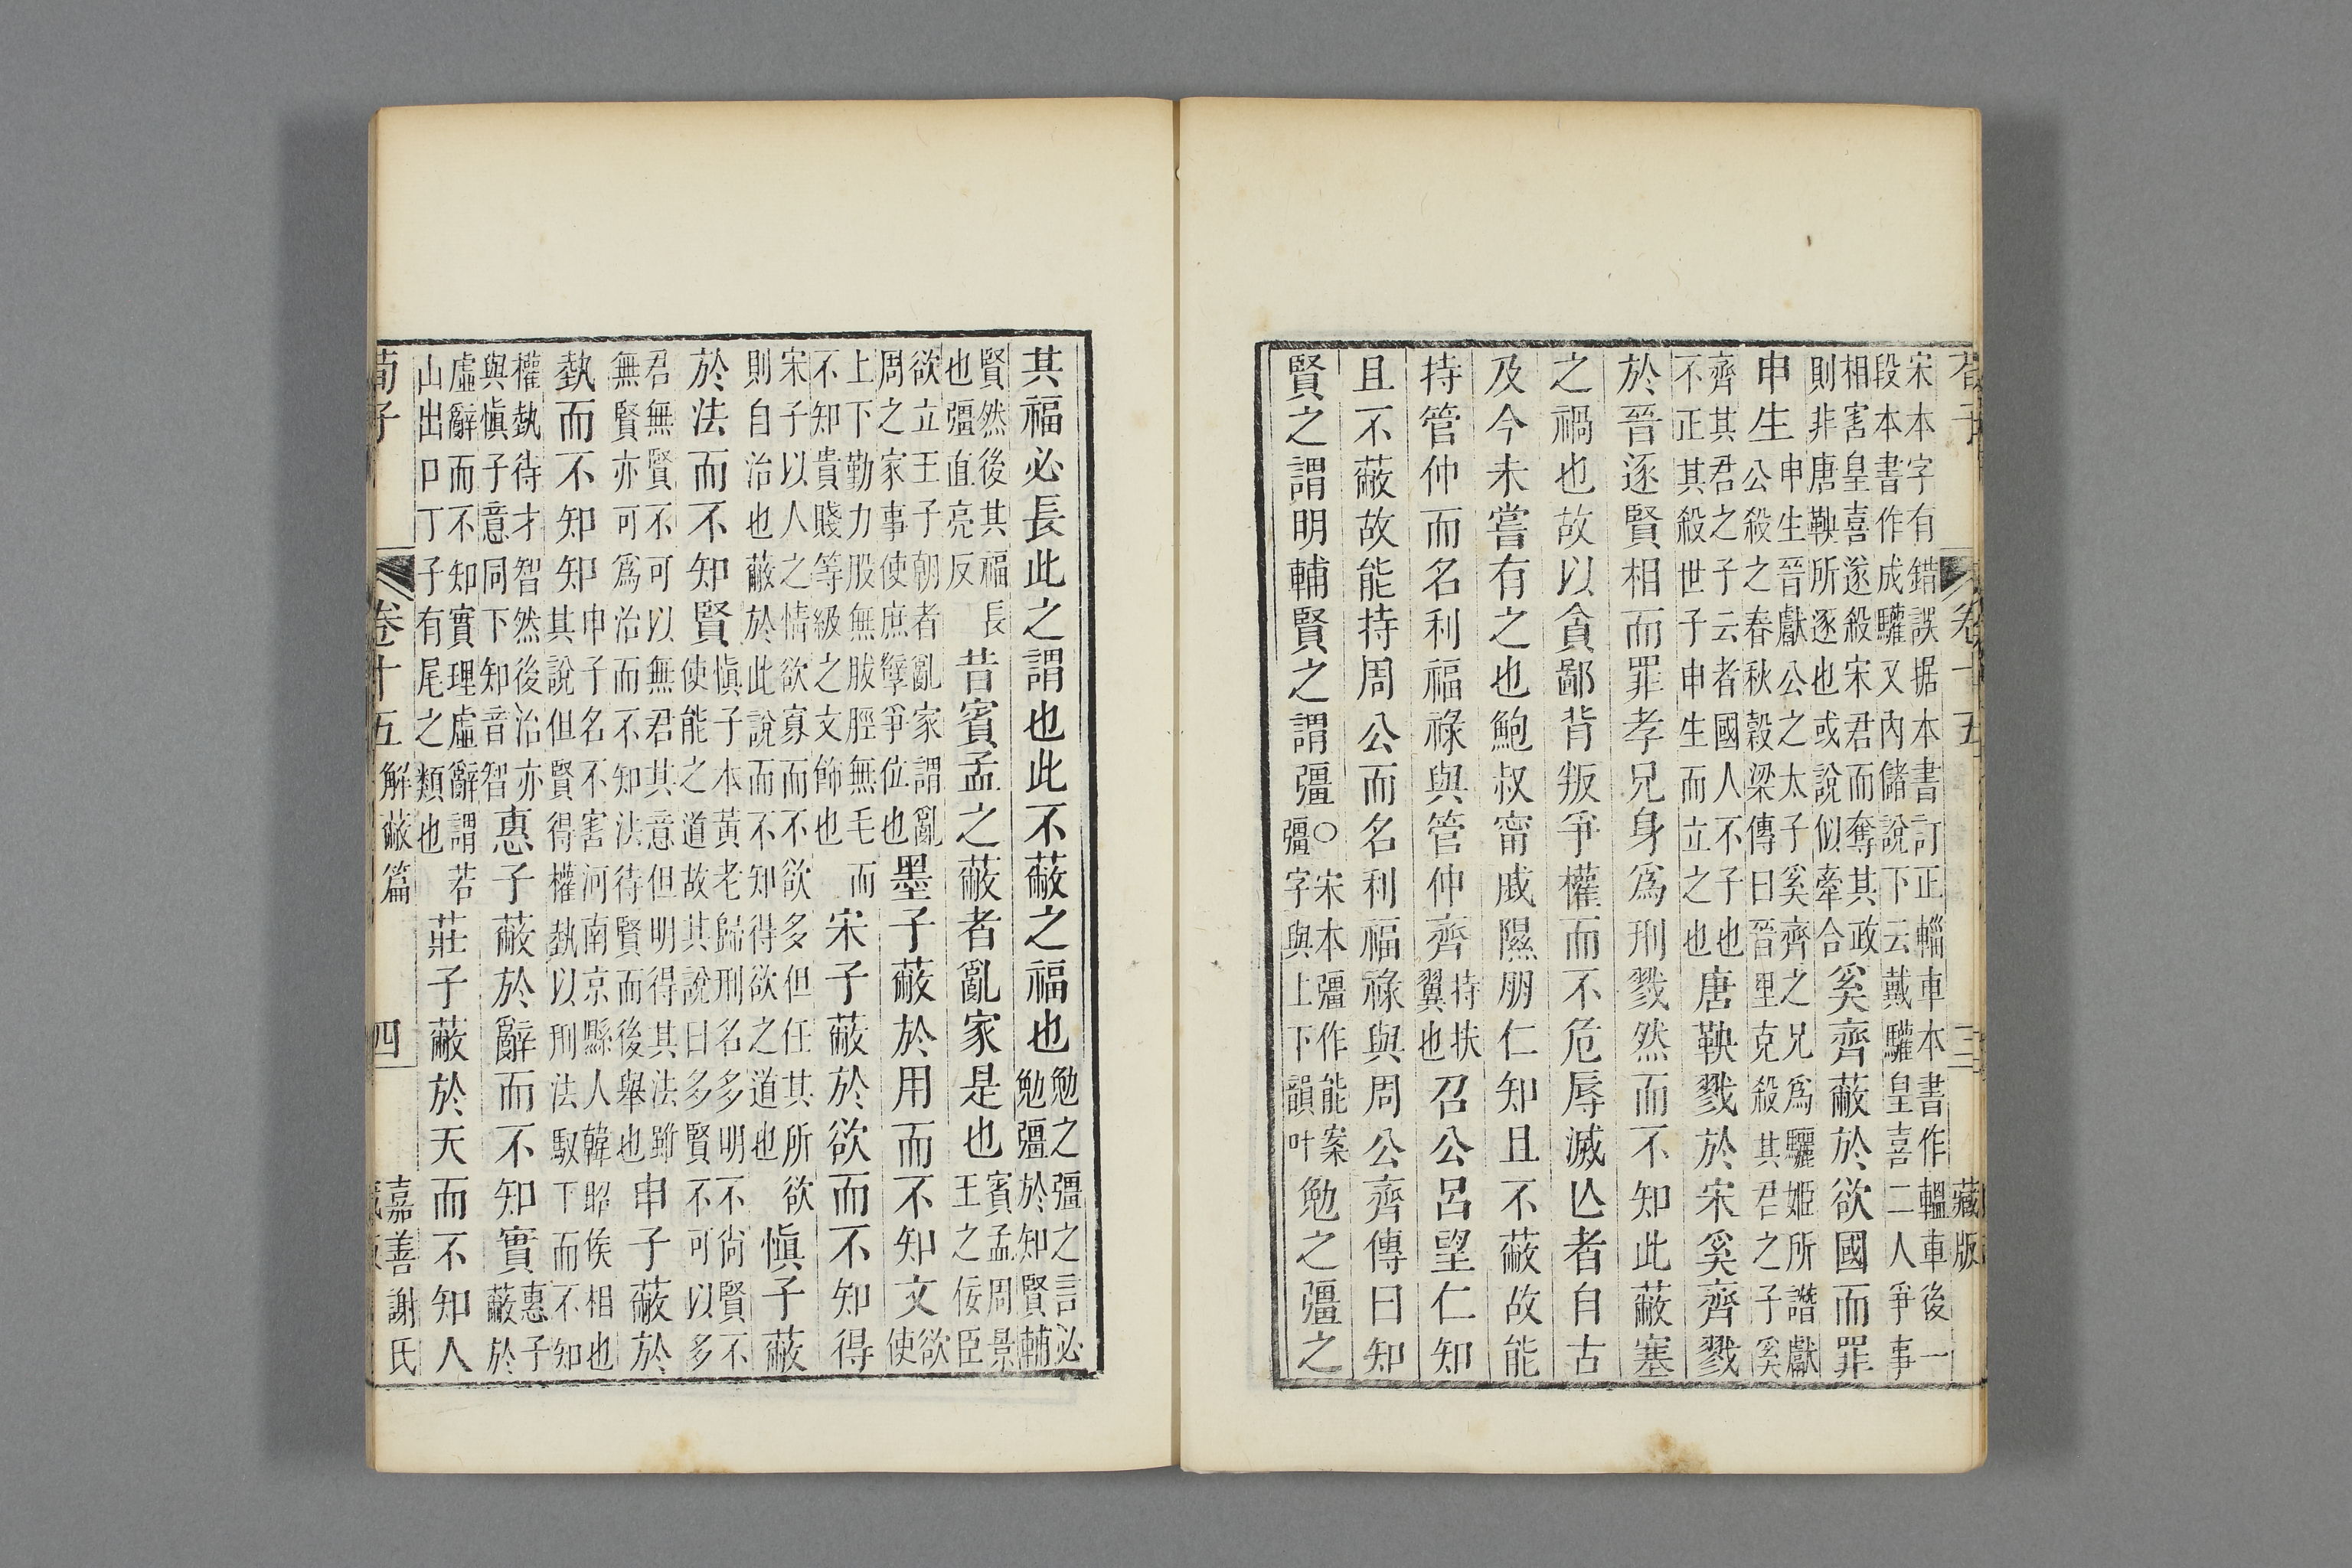 荀子 卷十五 三 藏版
宋本字有錯誤据本書訂正輜車本書作轀車後一
段本書作成驩又內儲說下云戴驩皇喜二人爭事
相害皇喜遂殺宋君而奪其政
則非唐鞅所逐也或說似牽合
奚齊蔽於欲國而罪
申生
申生晉獻公之太子奚齊之兄爲驪姬所譖獻
公殺之春秋穀梁傳曰晉里克殺其君之子奚
齊其君之子云者國人不子也
不正其殺世子申生而立之也
唐鞅戮於宋奚齊戮
於晉逐賢相而罪孝兄身爲刑戮然而不知此蔽塞
之禍也故以貪鄙背叛爭權而不危辱滅亾者自古
及今未嘗有之也鮑叔甯戚隰朋仁知且不蔽故能
持管仲而名利福祿與管仲齊
持扶
翼也
召公呂望仁知
且不蔽故能持周公而名利福祿與周公齊傳曰知
賢之謂明輔賢之謂彊
○宋本彊作能案
彊字與上下韻叶
勉之彊之
其福必長此之謂也此不蔽之福也
勉之彊之言必
勉彊於知賢輔
賢然後其福長
也彊直亮反
昔賓孟之蔽者亂家是也
賓孟周景
王之佞臣
欲立王子朝者亂家謂亂
周之家事使庶孽爭位也
墨子蔽於用而不知文
欲
使
上下勤力股無胈脛無毛而
不知貴賤等級之文飾也
宋子蔽於欲而不知得
宋子以人之情欲寡而不欲多但任其所欲
則自治也蔽於此說而不知得欲之道也
愼子蔽
於法而不知賢
愼子本黃老歸刑名多明不尙賢不
使能之道故其說曰多賢不可以多
君無賢不可以無君其意但明得其法雖
無賢亦可爲治而不知法待賢而後舉也
申子蔽於
埶而不知知
申子名不害河南京縣人韓昭侯相也
其說但賢得權埶以刑法馭下而不知
權埶待才智然後治亦
與愼子意同下知音智
惠子蔽於辭而不知實
惠子
蔽於
虛辭而不知實理虛辭謂若
山出口丁子有尾之類也
莊子蔽於天而不知人
荀子 卷十五 解蔽篇 四 嘉善謝氏
藏版